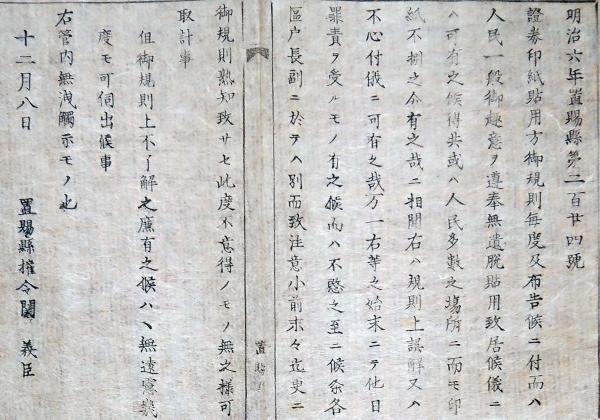 明治六年置賜縣第二百廿四號
證券印紙貼用方御規則毎度及布告候ニ付而ハ
人民一般御趣意ヲ遵奉無遺脱貼用致居候儀ニ
ハ可有之候得共或ハ人民多數之場所ニ而モ印
紙不捌之分有之哉ニ相聞右ハ規則上誤解又ハ
不心付儀ニ可有之哉万一右等之始末ニテ他日
罪責ヲ受ルモノ有之候而ハ不愍之至ニ候条各
區戸長副ニ於テハ別而致注意小前末々迄更ニ
置賜縣
御規則熟知致サセ此度不意得ノモノ無之樣可
取計事
但御規則上不了解之廉有之候ハヽ無遠慮幾
度モ可伺出候事
右管内無洩觸示モノ也
十二月八日
置賜縣權令關 義臣